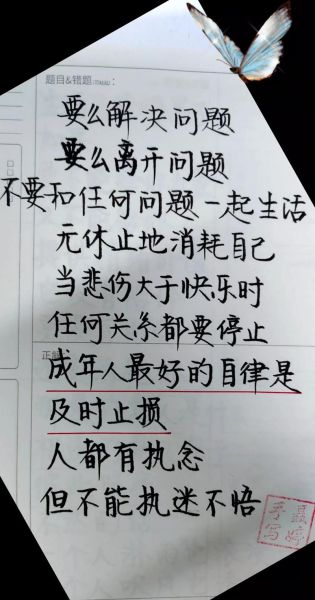 题目&错题(TIMU&):
要么解决问题
要么离开问题
不要和任何问题一起生活
无休止地消耗自己
当悲伤大于快乐时
任何关系都要停止
正解
成年人最好的自律是
及时止损
人都有执念
但不能执迷不悟
手写
聂婷